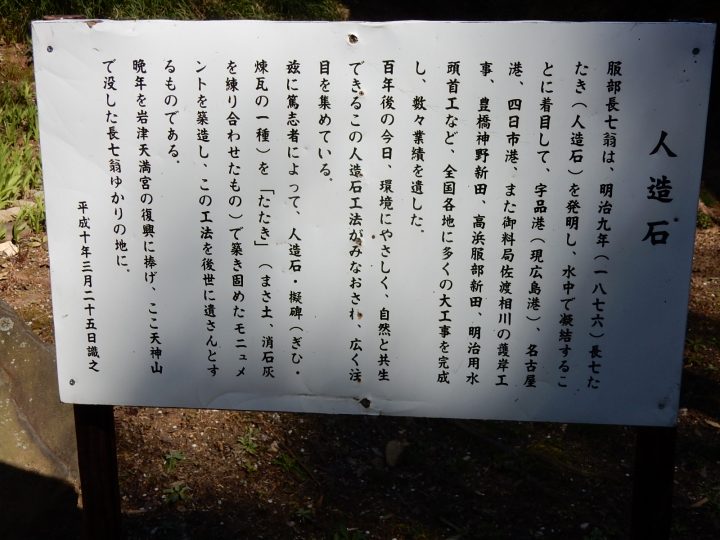 人造石
服部長七翁は、明治九年(一八七六)長七た
たき(人造石)を発明し、水中で凝結するこ
とに着目して、宇品港(現広島港)、名古屋
港、四日市港、また御料局佐渡相川の護岸工
事、豊橋神野新田、高浜服部新田、明治用水
頭首工など、全国各地に多くの大工事を完成
し、数々業績を遺した。
百年後の今日、環境にやさしく、自然と共生
できるこの人造石工法がみなおされ、広く注
目を集めている。
玆に篤志者によって、人造石・擬碑(ぎひ・
煉瓦の一種)を「たたき」(まさ土、消石灰
を練り合わせたもの)で築き固めたモニュメ
ントを築造し、この工法を後世に遺さんとす
るものである。
晩年を岩津天満宮の復興に捧げ、ここ天神山
で没した長七翁ゆかりの地に。
平成十年三月二十五日識之